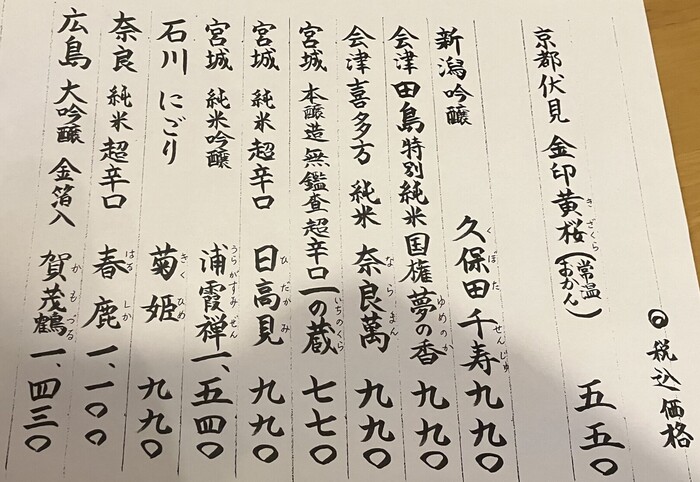 ◎税込価格
京都伏見 金印黄桜(常温 おかん) 五五〇
きざくら
新潟吟醸 久保田千寿 九九〇
くぼた せんじゅ
会津田島特別純米国権夢の香 九九〇
ゆめのか
会津喜多方 純米 奈良萬 九九〇
ならまん
宮城 本醸造無鑑査超辛口一の蔵 七七〇
いちのくら
宮城 純米超辛口 日高見 九九〇
ひだかみ
宮城 純米吟醸 浦霞禅 一、五四〇
うらがすみ ぜん
石川 にごり 菊姫 九九〇
きくひめ
奈良 純米超辛口 春鹿 一、一〇〇
はるしか
広島 大吟醸 金箔入 賀茂鶴 一、四三〇
かもづる